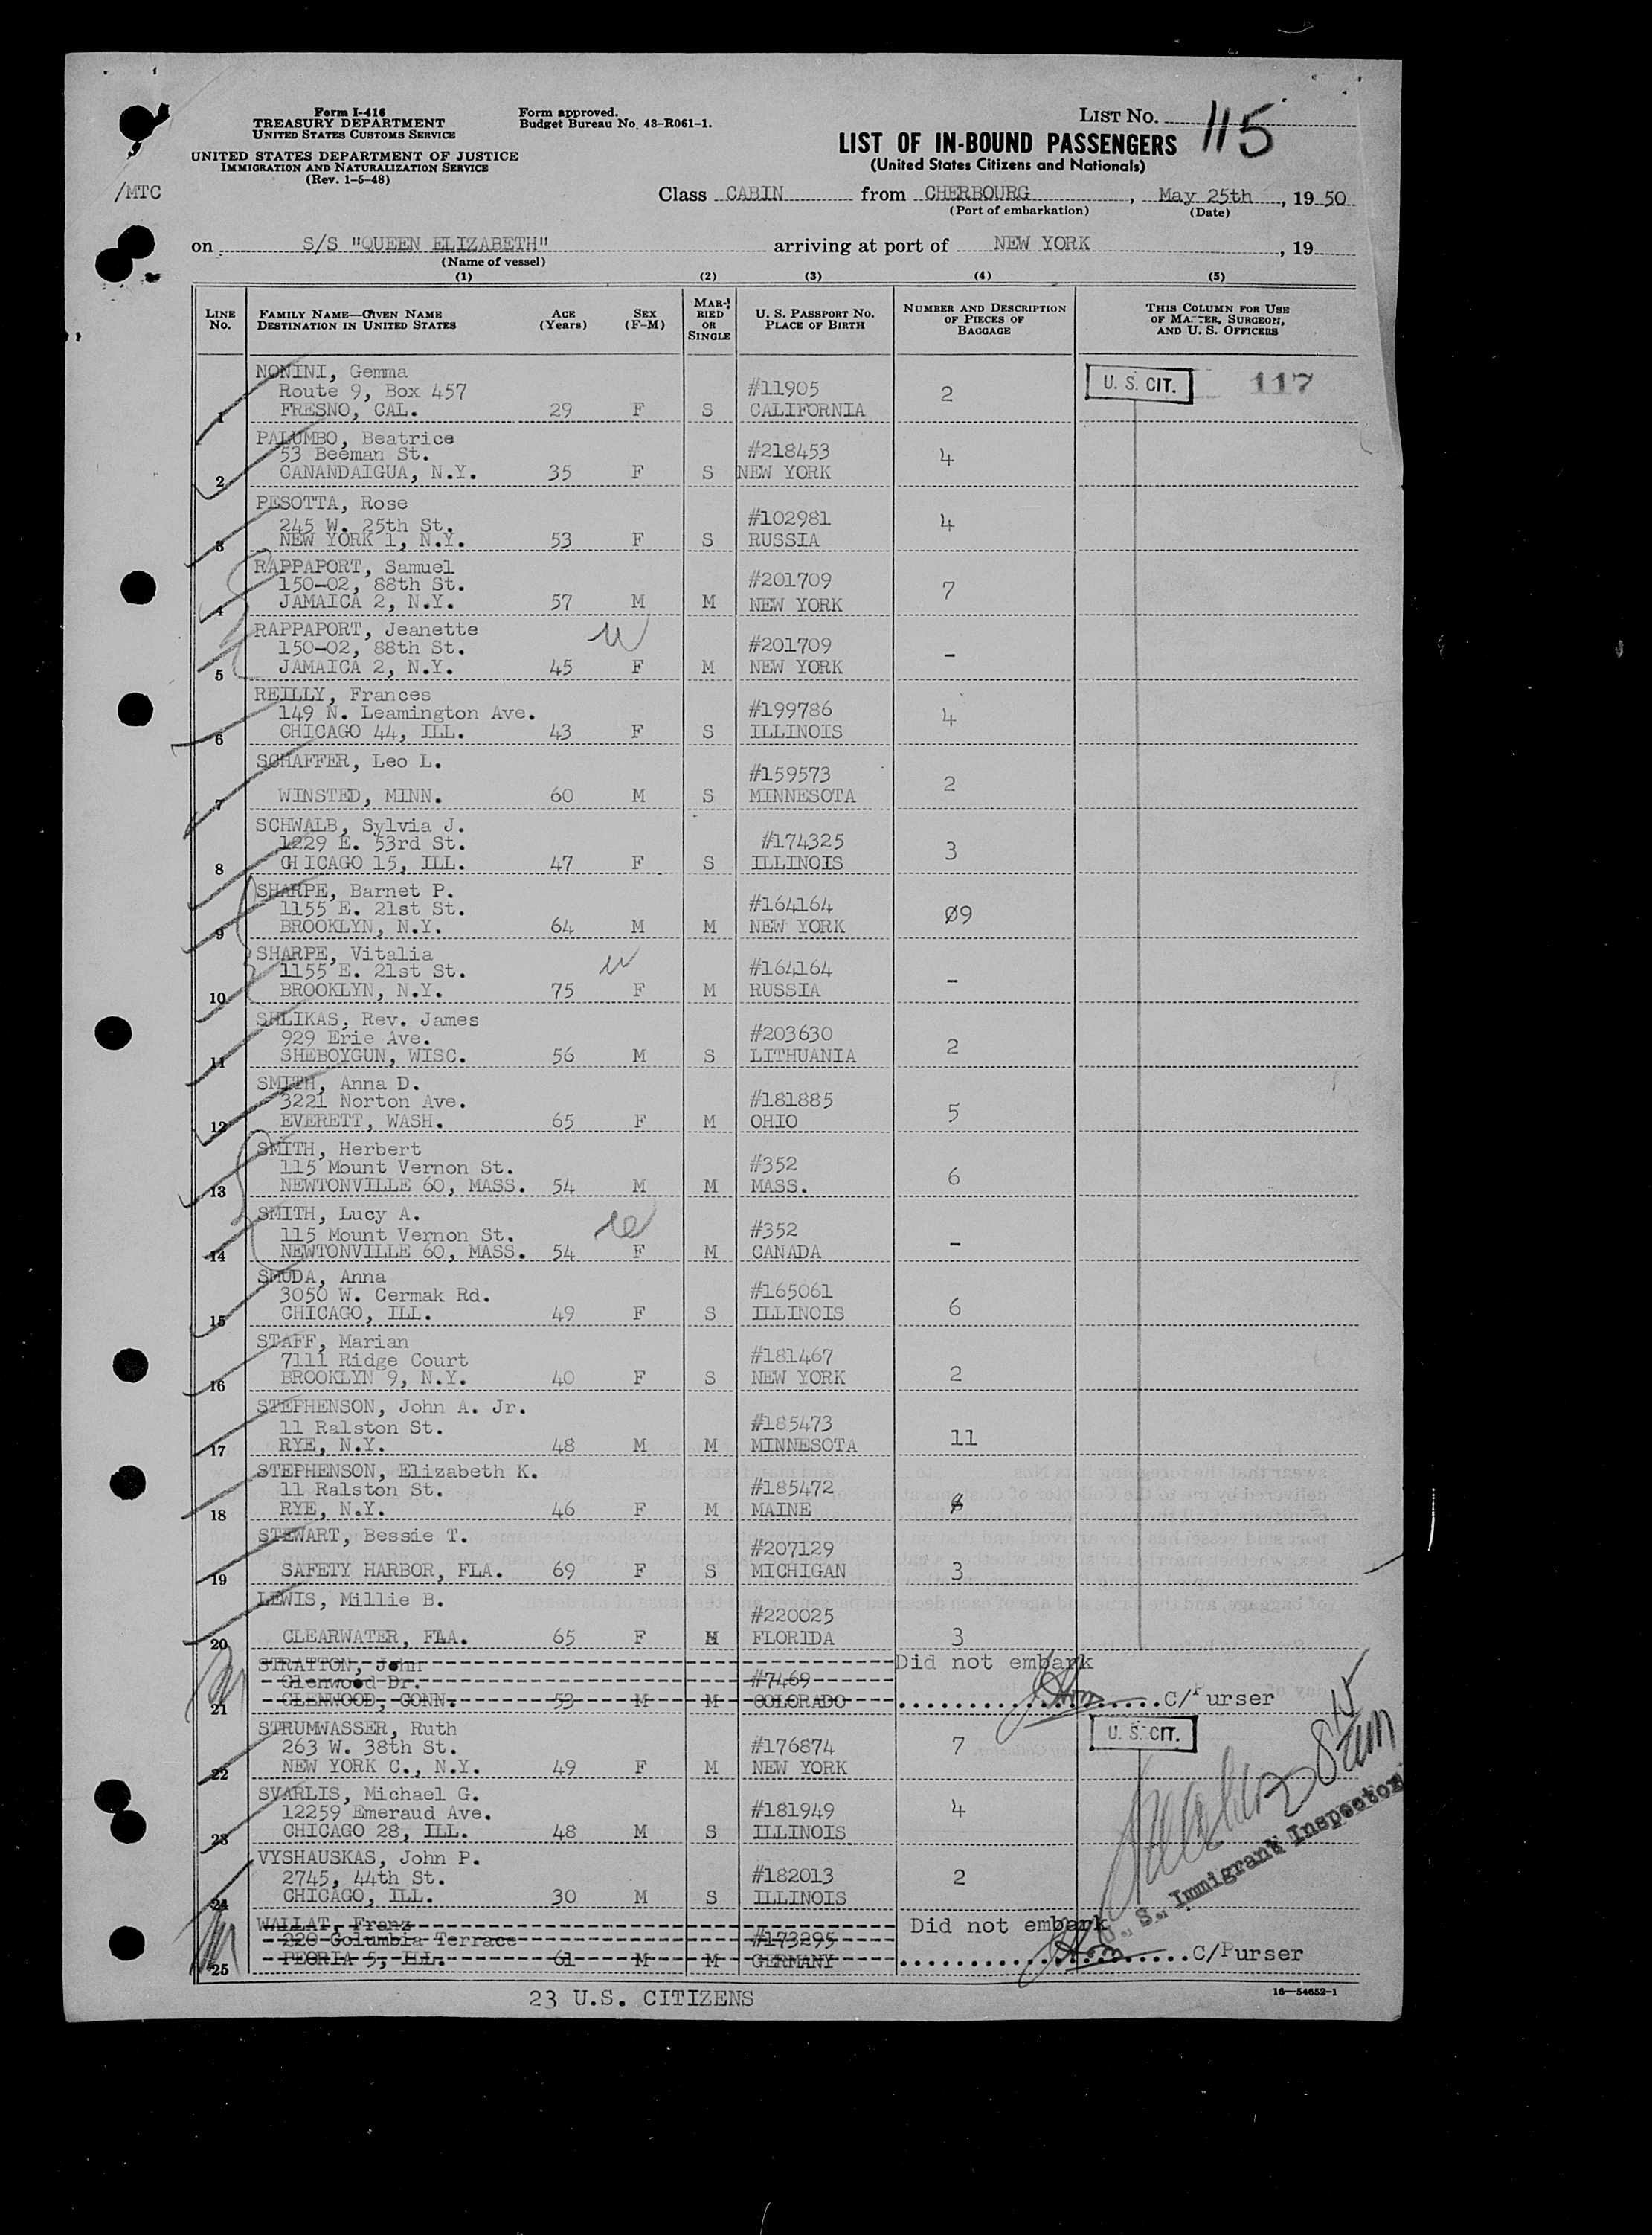 Form I-416
TREASURY DEPARTMENT
UNITED STATES CUSTOMS SERVICE
UNITED STATES DEPARTMENT OF JUSTICE
IMMIGRATION AND NATURALIZATION SERVICE
(Rev. 1-5-48)
Form approved.
Budget Bureau No. 43-R061-1.
LIST No. 115
LIST OF IN-BOUND PASSENGERS
(United States Citizens and Nationals)
/MTC
Class CABIN from CHERBOURG, May 25th, 19 50
(Port of embarkation) (Date)
on S/S "QUEEN ELIZABETH" arriving at port of NEW YORK, 19
(Name of vessel)
(1) (2) (3) (4) (5)
LINE No. FAMILY NAME—GIVEN NAME DESTINATION IN UNITED STATES AGE (Years) SEX (F-M) MARRIED OR SINGLE U. S. PASSPORT No. PLACE OF BIRTH NUMBER AND DESCRIPTION OF PIECES OF BAGGAGE THIS COLUMN FOR USE OF MASTER, SURGEON, AND U. S. OFFICERS
NONINI, Gemma
Route 9, Box 457 #11905 2 U. S. CIT. 117
1 FRESNO, CAL. 29 F S CALIFORNIA
PALUMBO, Beatrice
53 Beeman St. #218453 4
2 CANANDAIGUA, N.Y. 35 F S NEW YORK
PESOTTA, Rose
245 W. 25th St. #102981 4
3 NEW YORK 1, N.Y. 53 F S RUSSIA
RAPPAPORT, Samuel
150-02, 88th St. #201709 7
4 JAMAICA 2, N.Y. 57 M M NEW YORK
RAPPAPORT, Jeanette w
150-02, 88th St. #201709 -
5 JAMAICA 2, N.Y. 45 F M NEW YORK
REILLY, Frances
149 N. Leamington Ave. #199786 4
6 CHICAGO 44, ILL. 43 F S ILLINOIS
SCHAFFER, Leo L.
#159573 2
7 WINSTED, MINN. 60 M S MINNESOTA
SCHWALB, Sylvia J.
1229 E. 53rd St. #174325 3
8 CHICAGO 15, ILL. 47 F S ILLINOIS
SHARPE, Barnet P.
1155 E. 21st St. #164164 09
9 BROOKLYN, N.Y. 64 M M NEW YORK
SHARPE, Vitalia w
1155 E. 21st St. #164164 -
10 BROOKLYN, N.Y. 75 F M RUSSIA
SHLIKAS, Rev. James
929 Erie Ave. #203630 2
11 SHEBOYGUN, WISC. 56 M S LITHUANIA
SMITH, Anna D.
3221 Norton Ave. #181885 5
12 EVERETT, WASH. 65 F M OHIO
SMITH, Herbert
115 Mount Vernon St. #352 6
13 NEWTONVILLE 60, MASS. 54 M M MASS.
SMITH, Lucy A. w
115 Mount Vernon St. #352 -
14 NEWTONVILLE 60, MASS. 54 F M CANADA
SMUDA, Anna
3050 W. Cermak Rd. #165061 6
15 CHICAGO, ILL. 49 F S ILLINOIS
STAFF, Marian
7111 Ridge Court #181467 2
16 BROOKLYN 9, N.Y. 40 F S NEW YORK
STEPHENSON, John A. Jr.
11 Ralston St. #185473 11
17 RYE, N.Y. 48 M M MINNESOTA
STEPHENSON, Elizabeth K.
11 Ralston St. #185472
18 RYE, N.Y. 46 F M MAINE
STEWART, Bessie T.
#207129
19 SAFETY HARBOR, FLA. 69 F S MICHIGAN 3
LEWIS, Millie B.
#220025
20 CLEARWATER, FLA. 65 F FLORIDA 3
STRATTON, John Did not embark
Glenwood Dr. #7469
21 GLENWOOD, CONN. 53 M M COLORADO C/Purser
STRUMWASSER, Ruth U. S. CIT.
263 W. 38th St. #176874 7
22 NEW YORK C., N.Y. 49 F M NEW YORK
SVARLIS, Michael G.
12259 Emeraud Ave. #181949 4
23 CHICAGO 28, ILL. 48 M S ILLINOIS
VYSHAUSKAS, John P.
2745, 44th St. #182013 2
24 CHICAGO, ILL. 30 M S ILLINOIS
U. S. Immigrant Inspector
WALLAT, Franz Did not embark
220 Columbia Terrace #173295
25 PEORIA 5, ILL. 61 M M GERMANY C/Purser
23 U.S. CITIZENS
16—54652-1